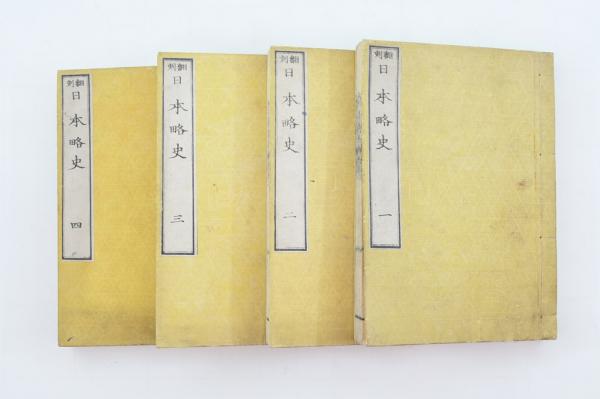 翻刻
日本略史 一
翻刻
日本略史 二
翻刻
日本略史 三
翻刻
日本略史 四